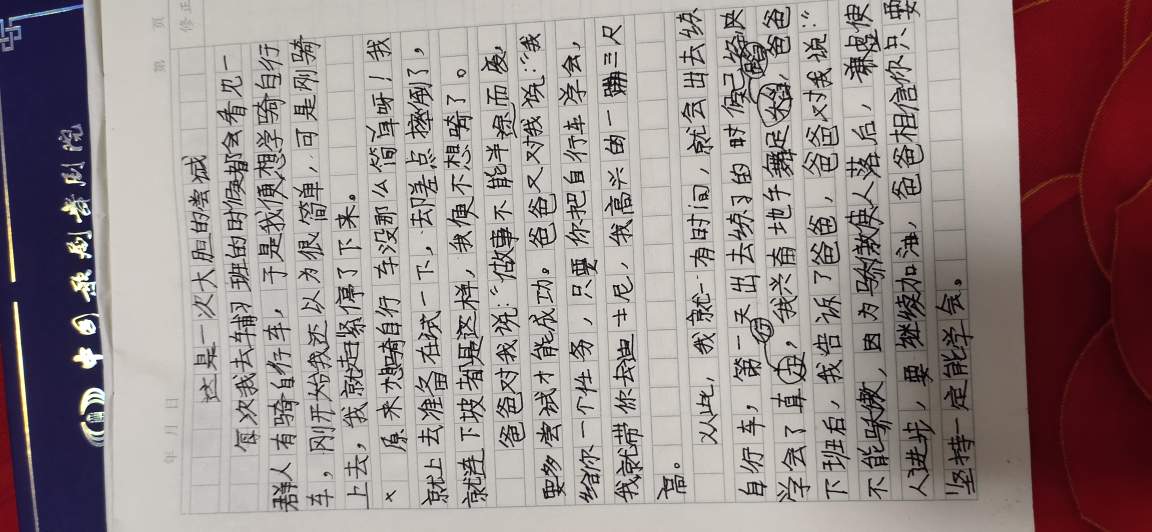 中国歌剧舞剧院
年 月 日
第 页
这是一次大胆的尝试
每次我去辅习班的时候都会看见一
群人有骑自行车，于是我便想学骑自行
车，刚开始我还以为很简单，可是刚骑
上去，我就赶紧停了下来。
原来想骑自行车没那么简单呀！我
就上去准备在试一下，去陊差点摔倒了，
就连下坡都是这样，我便不想骑了。
爸爸对我说：“做事不能半途而废，
要多尝试才能成功。爸爸又对我说：“我
给你一个任务，只要你把自行车学会，
我就带你去迪士尼，我高兴的一蹦三尺
高。
从此，我就一有时间，就会出去练
自行车，第一天出去练习的时候已经快
学会了直，我兴奋地手舞足蹈，爸爸
下班后，我告诉了爸爸，爸爸对我说：“
不能骄傲，因为骄傲使人落后，谦虚使
人进步，要继续加油，爸爸相信你只要
坚持一定能学会。